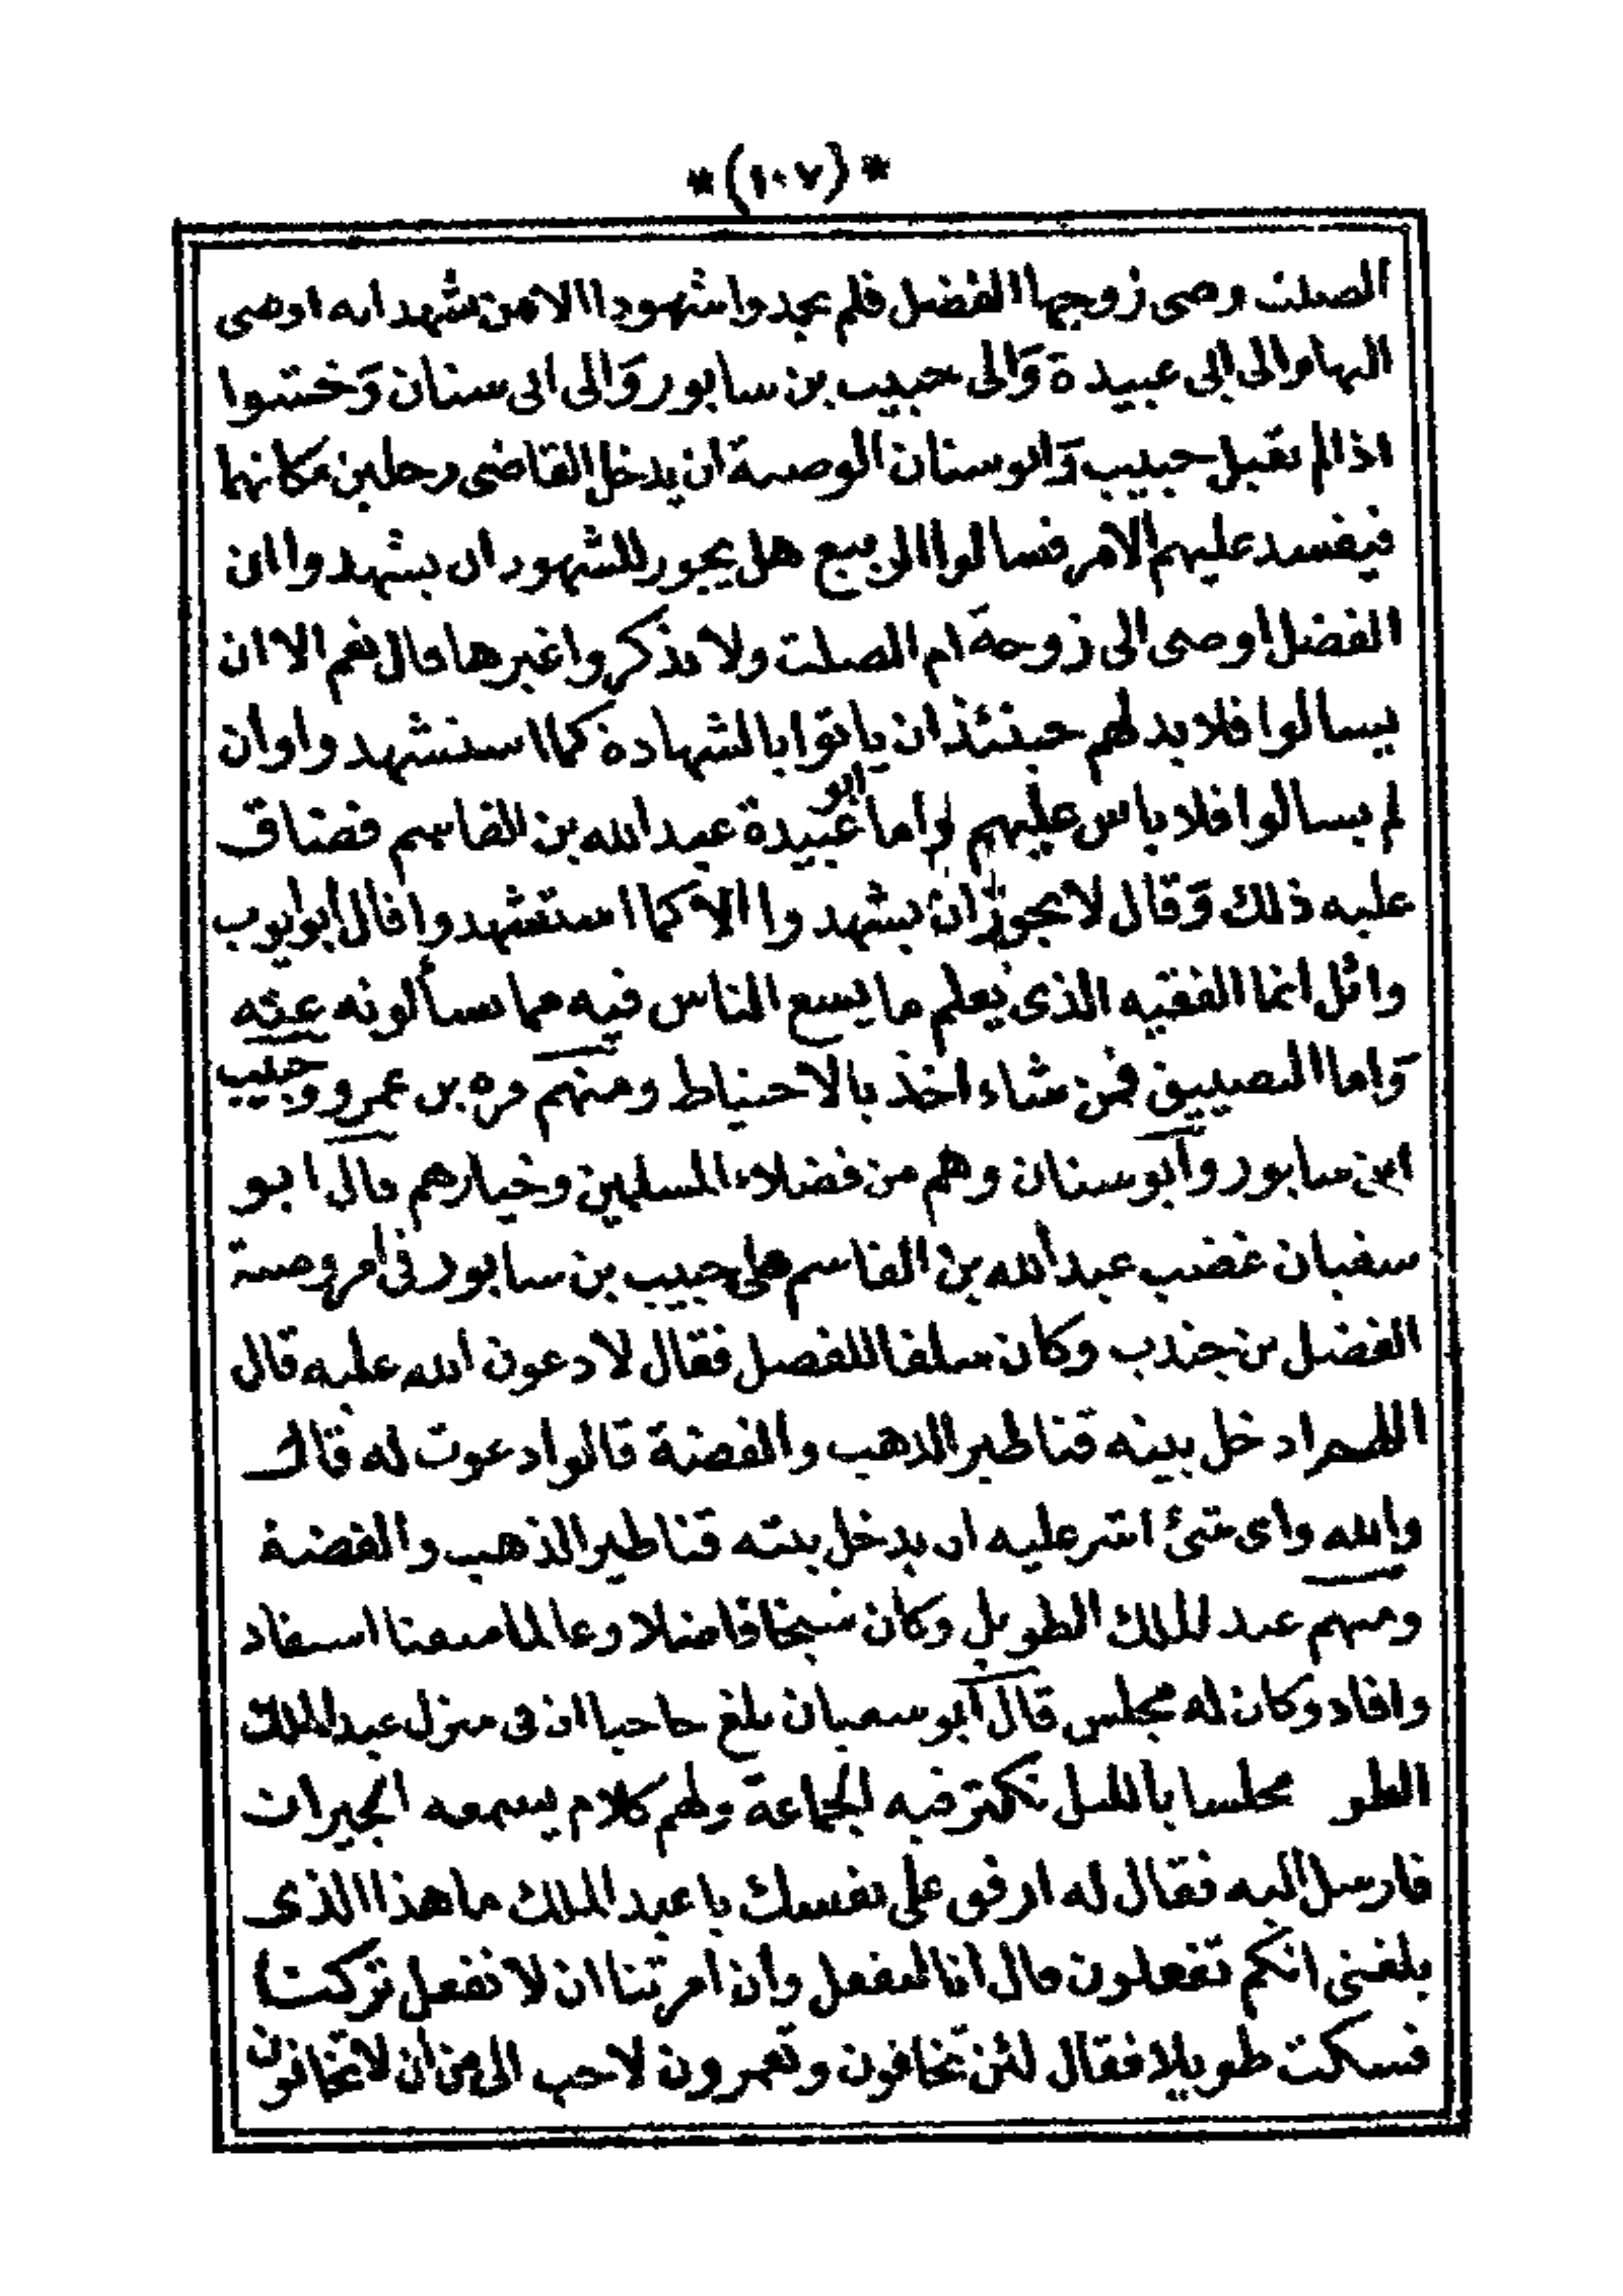 *(١٠٧)*
الصلت وصى زوجها الفضل فلم يجدوا شهودا الا من شهد انه اوصى
اليها والى ابى عبيدة وَالى حبيب بن سابور وَالى ابى سنان وَخشوا
اذا لم يقبل حبيب وَابو سنان الوصية ان يدخل القاضى رجلين مكانهما
فيفسد عليهم الامر فسالوا الربيع هل يجوز للشهود ان يشهدوا ان
الفضل اوصى الى زوجة ام الصلت ولا يذكروا غيرها قال نعم الا ان
يسالوا فلا بد لهم حينئذ ان ياتوا بالشهادة كما استشهدوا وان
لم يسالوا فلا باس عليهم واما ابو عبيدة عبد الله بن القاسم فضاق
عليه ذلك وَقال لا يجوز ان يشهدوا الا كما استشهدوا قال ابو ايوب
وائل انما الفقيه الذى يعلم ما يسع الناس فيه مما يسألونه عنه
وَاما التضييق فمن شاء اخذ بالاحتياط ومنهم مرة بن عمرو وحبيب
ابن سابور وأبو سنان وهم من فضلاء المسلمين وخيارهم قال ابو
سفيان غضب عبد الله بن القاسم على حبيب بن سابور فى امر وصية
الفضل بن جندب وكان سلفا للفضل فقال لادعون الله عليه قال
اللهم ادخل بيته قناطير الذهب والفضة قالوا دعوت له قال
والله واى شئ اشر عليه ان يدخل بيته قناطير الذهب والفضة
ومنهم عبد الملك الطويل وكان شيخا فاضلا وعالما متقنا استفاد
وافاد وكان له مجلس قال أبو سفيان بلغ حاجبا ان فى منزل عبد الملك
الطو مجلسا بالليل تكثر فيه الجماعة ولهم كلام يسمعه الجيران
فارسل اليه فقال له ارفق على نفسك يا عبد الملك ما هذا الذى
بلغنى انكم تفعلون قال انا لنفعل وان امرتنا ان لا نفعل تركنا
فسكت طويلا فقال لئن تخافون وتعمرون لاحب الى من ان لا تخافون